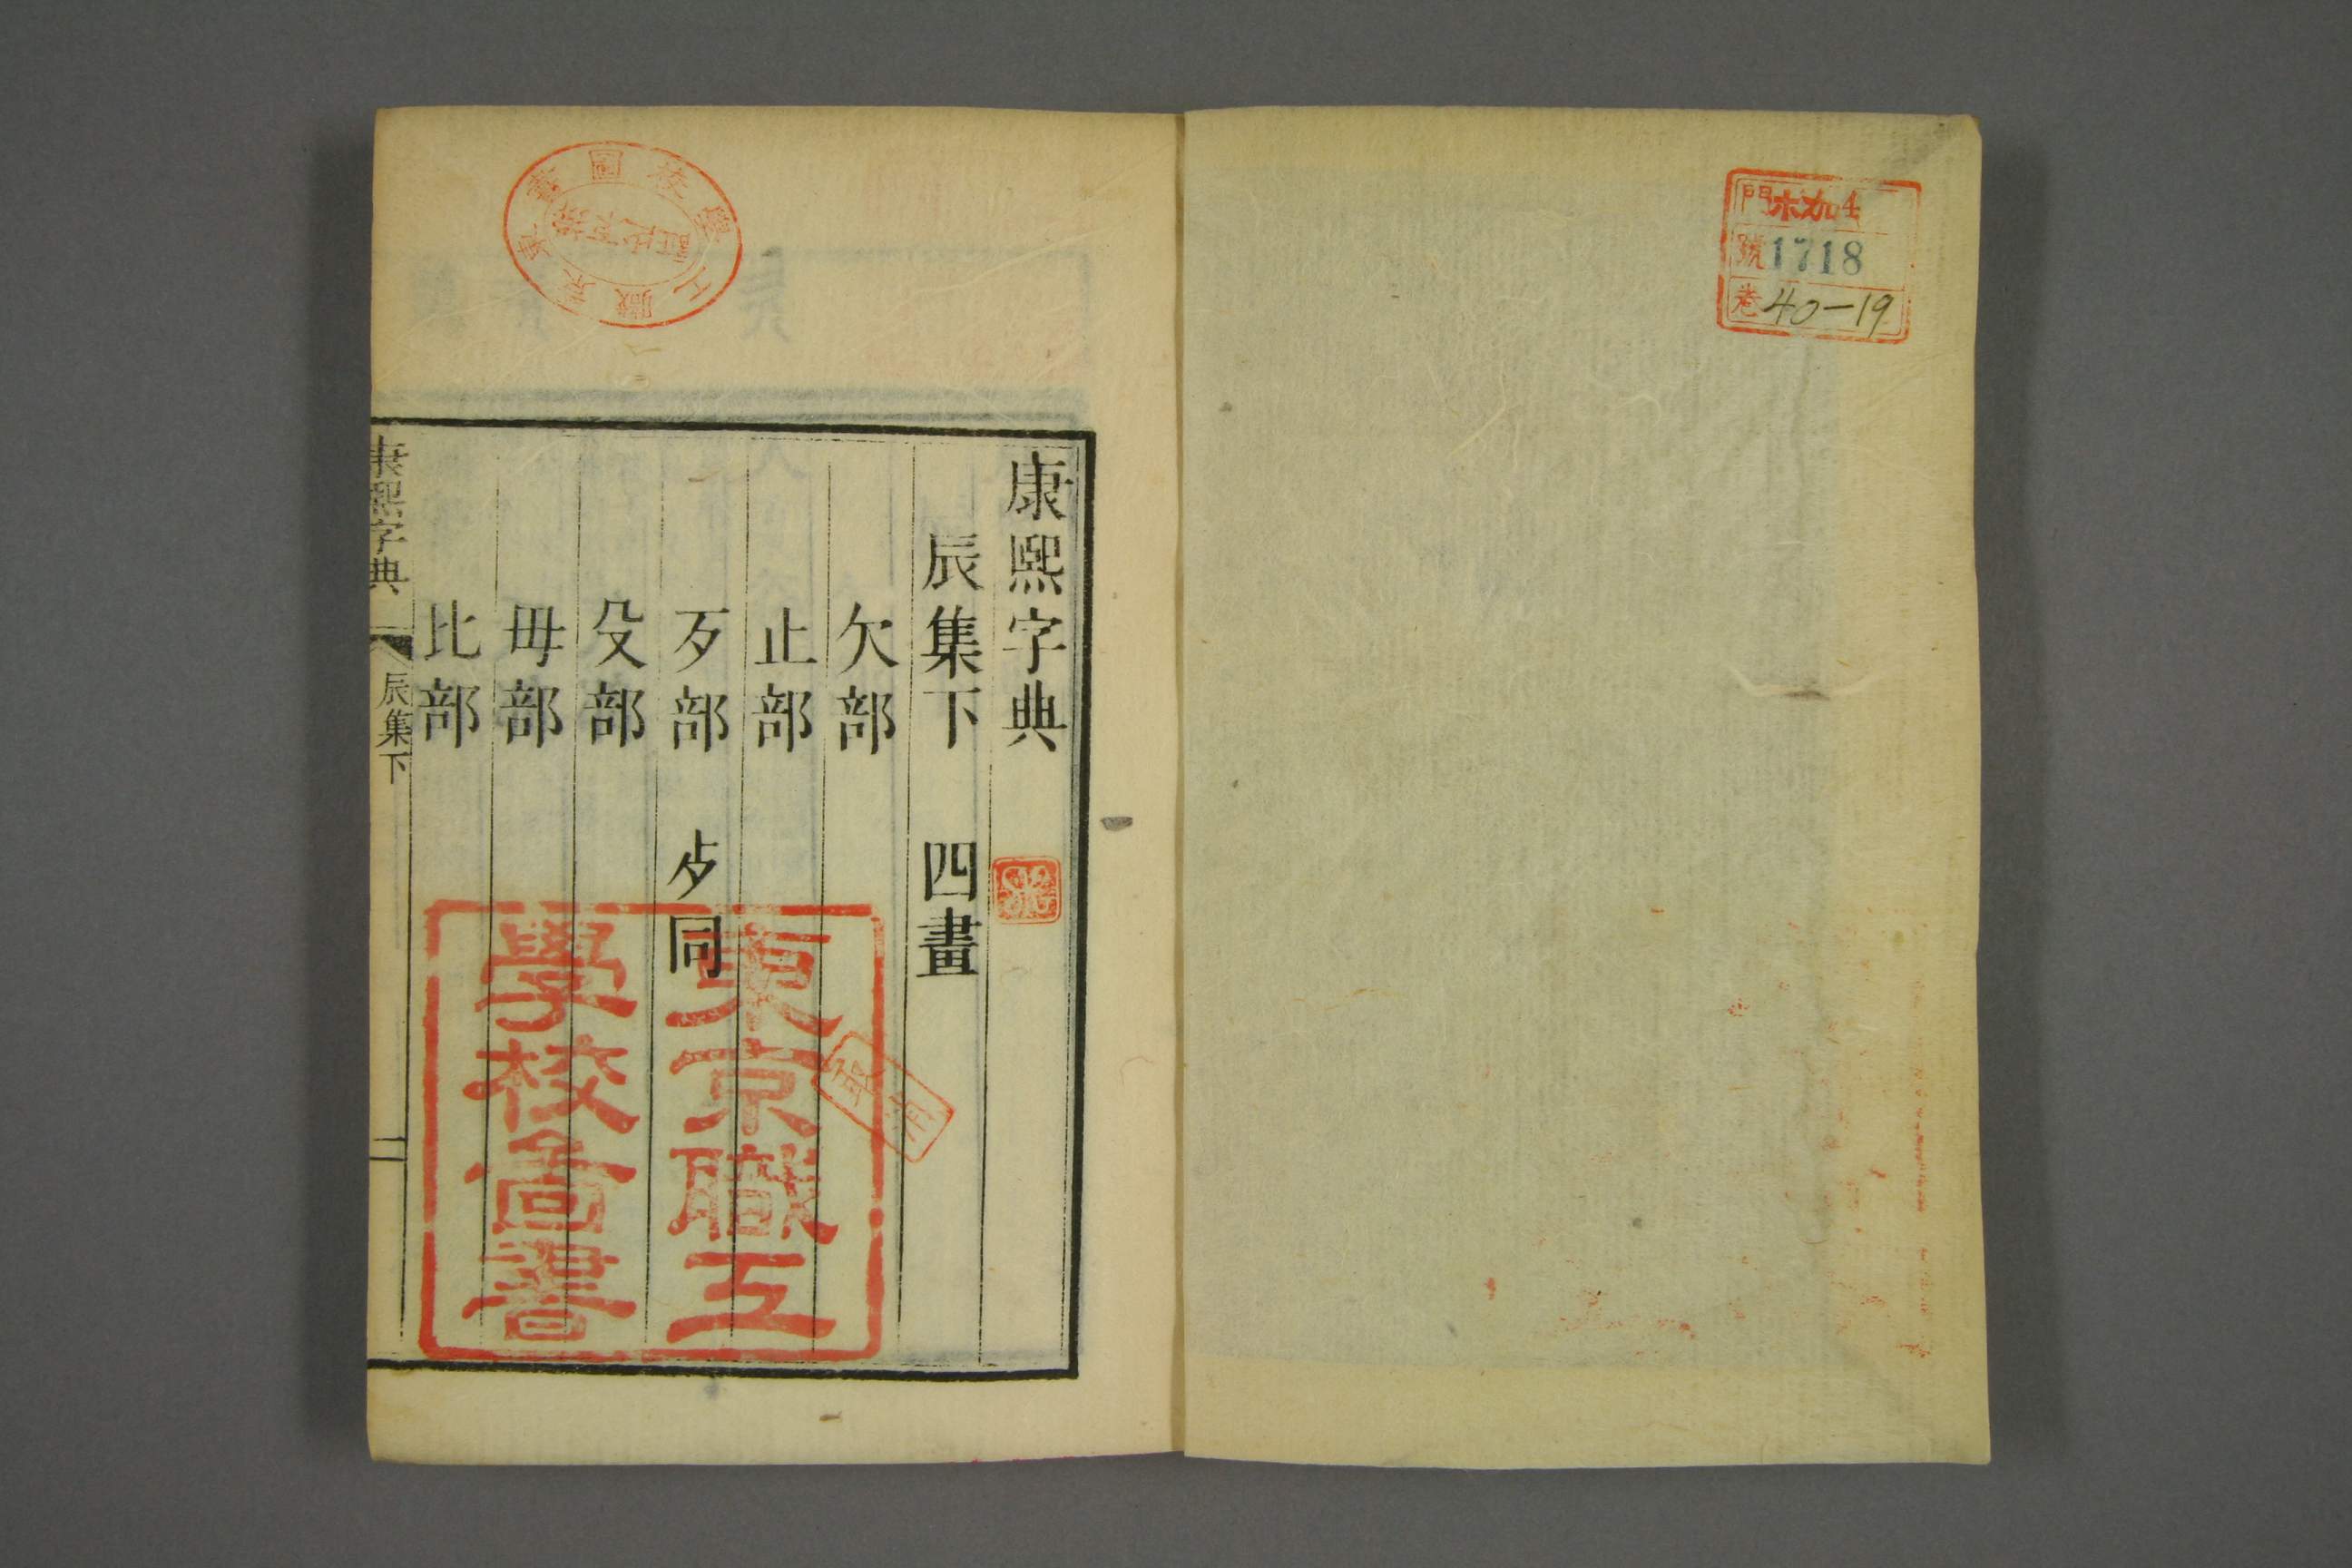 門 4
號 1718
卷 40-19
康熙字典
辰集下 四畫
欠部
止部
歹部 歺同
殳部
毋部
比部
康熙字典 辰集下 一
東京職工
學校啚書